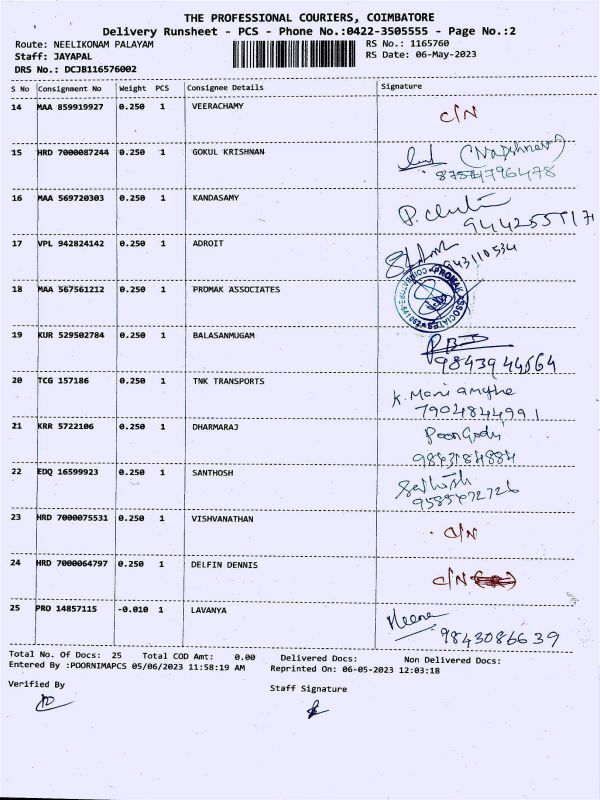 THE PROFESSIONAL COURIERS, COIMBATORE
Delivery Runsheet - PCS - Phone No.:0422-3505555 - Page No.:2
Route: NEELIKONAM PALAYAM RS No.: 1165760
Staff: JAYAPAL RS Date: 06-May-2023
DRS No.: DCJB116576002
S No Consignment No Weight PCS Consignee Details Signature
14 MAA 859919927 0.250 1 VEERACHAMY C/N
15 HRD 7000087244 0.250 1 GOKUL KRISHNAN
8754796478
16 MAA 569720303 0.250 1 KANDASAMY
17 VPL 942824142 0.250 1 ADROIT
943110534
18 MAA 567561212 0.250 1 PROMAK ASSOCIATES PROMAK ASSOCIATES
19 KUR 529502784 0.250 1 BALASANMUGAM
9843944564
20 TCG 157186 0.250 1 TNK TRANSPORTS K. Mani
7904844991
21 KRR 5722106 0.250 1 DHARMARAJ
22 EDQ 16599923 0.250 1 SANTHOSH
23 HRD 7000075531 0.250 1 VISHVANATHAN C/N
24 HRD 7000064797 0.250 1 DELFIN DENNIS C/N
25 PRO 14857115 -0.010 1 LAVANYA
9843086639
Total No. Of Docs: 25 Total COD Amt: 0.00 Delivered Docs: Non Delivered Docs:
Entered By :POORNIMAPCS 05/06/2023 11:58:19 AM Reprinted On: 06-05-2023 12:03:18
Verified By Staff Signature